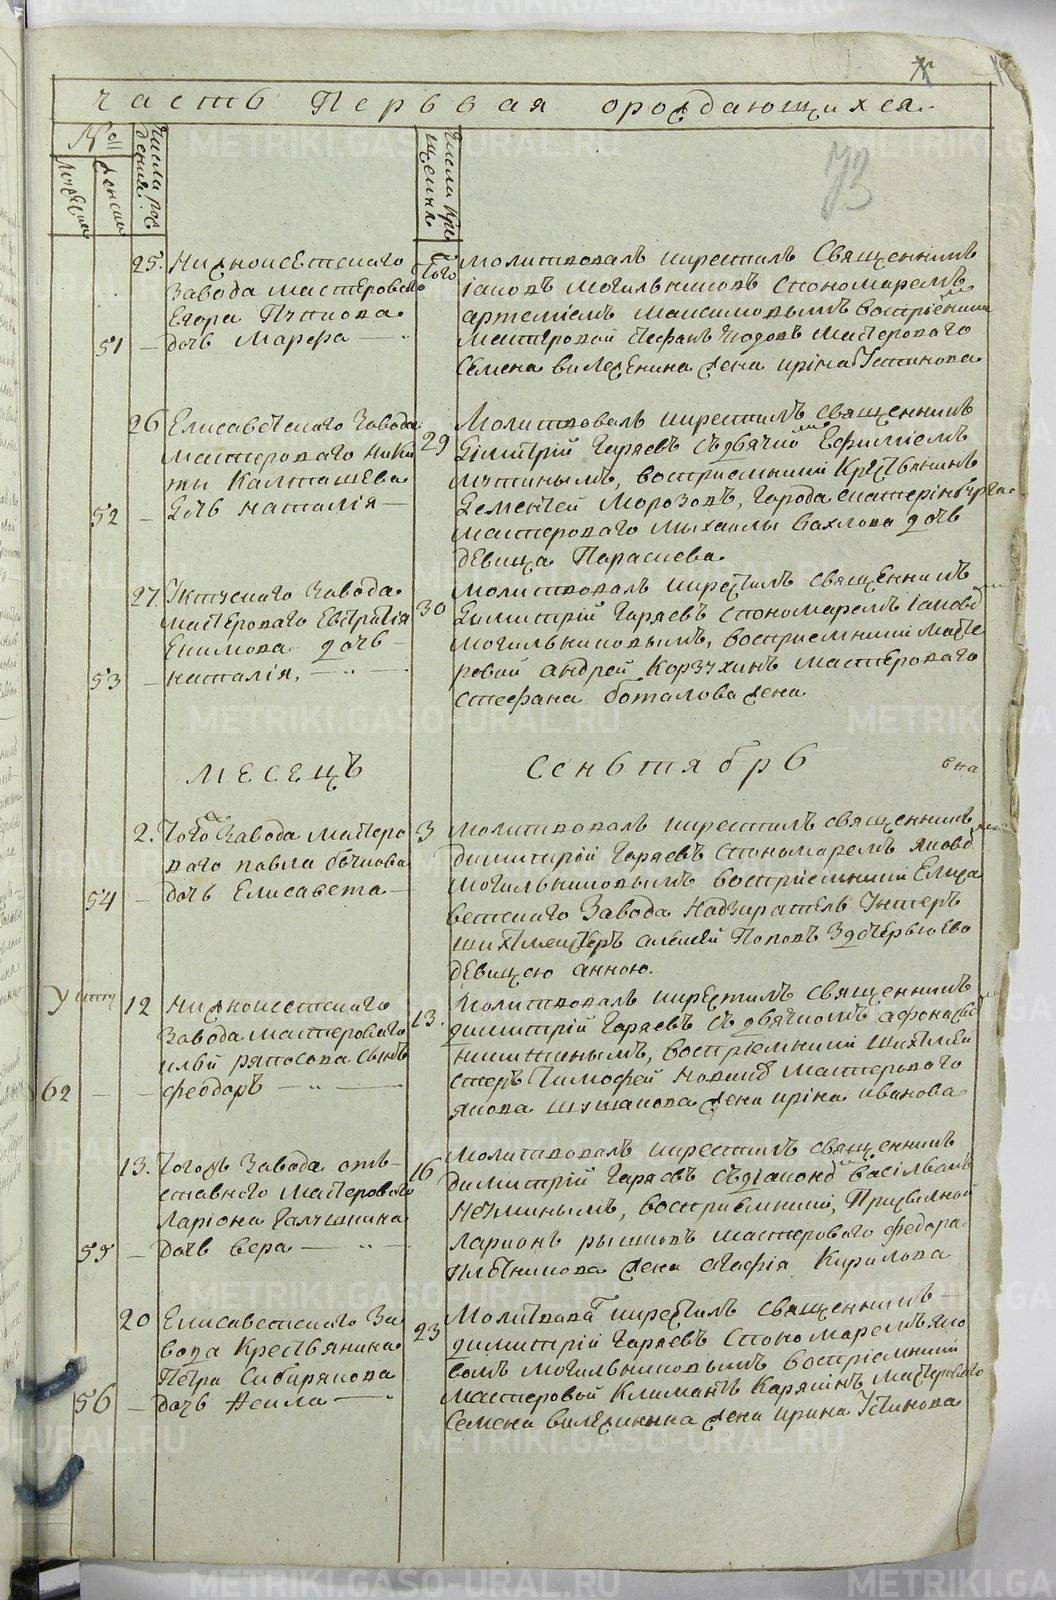 часть Первая орождающихся.
73
№
мужеска
женска
Числа рож
дения.
Числа кре
щения
25. Нижноисетского
Завода мастероваго
Егора Пупкова
51 — дочь Марфа —
Того
молитвовалъ икрестилъ Священникъ
Іаковъ могильниковъ спономаремъ
артеміемъ максимовымъ восприемники
мастеровой
мастероваго
Семена вилежанина жена иріна Устинова
26 Елисаветского Завода
мастероваго Ники
ты Калташева
52 — дочь наталія —
29
Молитвовалъ икрестилъ священникъ
Димитрій Гаряевъ съдьячкомъ Ефиміемъ
восприемники Крестьянинъ
Дементей Морозовъ, Города екатерінбурга
мастероваго Михаилы вахлова дочь
девица Параскева.
27. Уктуского Завода
мастероваго Евстратія
Екимова дочь
53 — наталія, —
30
молитвовалъ икрестилъ священникъ
Димитрій Гаряевъ спономаремъ Іаковомъ
могильниковымъ, восприемники масте
ровой андрей Корзухинъ мастероваго
стефана боталова жена
МЕСЕЦЪ Сеньтябрь
2. Того Завода мастеро
ваго павла бычкова
54 — дочь Елисавета —
3
молитвовалъ икрестилъ священникъ
димитрій Гаряевъ спономаремъ яковомъ
могильниковымъ восприемники Елиза
ветского Завода Надзиратель Унтеръ
шихтмейстеръ алексей Поповъ Здочерью ево
девицею анною.
12 Нижноисетского
Завода мастероваго
ильи ряпосова сынъ
62 — — феодоръ —
13.
молитвовалъ икрестилъ священникъ
димитрій Гаряевъ съдьячкомъ афонасьемъ
никитинымъ, восприемники шихтмей
стеръ Тимофей мастероваго
якова шушакова жена иріна иванова
13. Тогожъ Завода отъ-
ставного мастероваго
Ларіона Галушкина
55 — дочь вера —
16
молитвовалъ икрестилъ священникъ
димитрій Гаряевъ съдіакономъ васільемъ
восприемники,
Ларионъ рышковъ мастероваго федора
Плотникова жена агафія Кирилова
20 Елисаветского За
вода Крестьянина
Петра Сибирякова
56 — дочь —
23
Молитвовалъ икрестилъ священникъ —
димитрій Гаряевъ спономаремъ яко
вомъ могильниковымъ восприемники
мастеровый Климантъ Карякінъ мастероваго
Семена вилежанина жена ирина Устинова